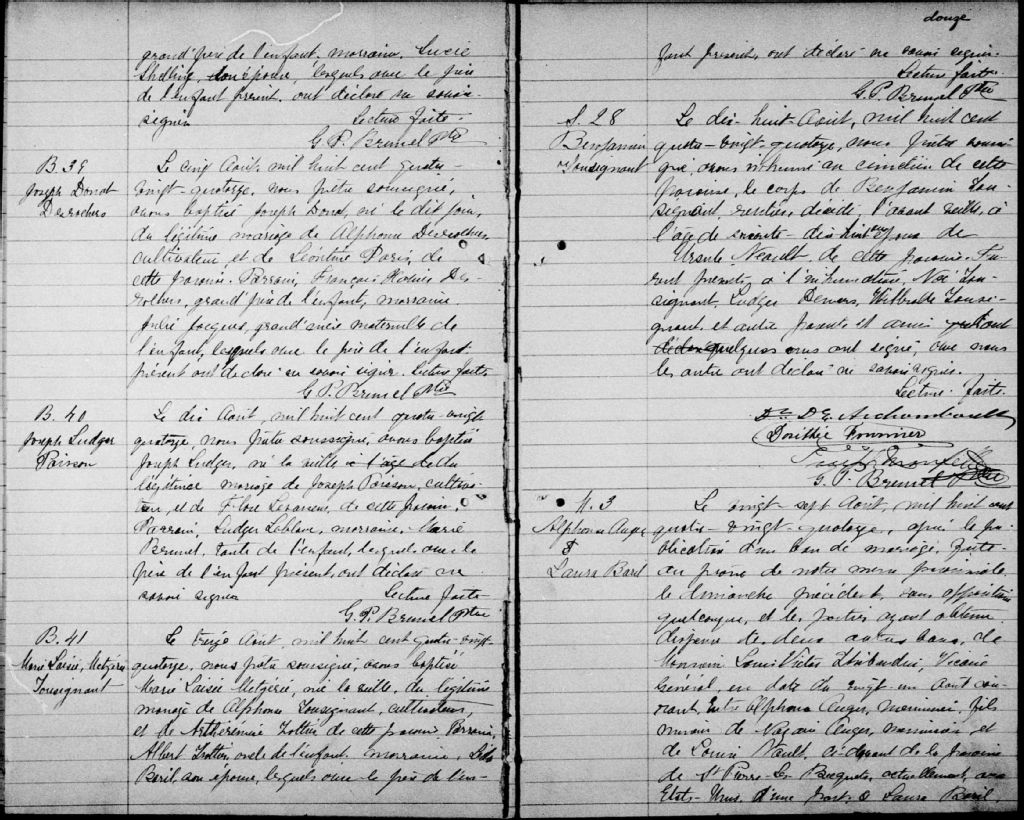 grand'père de l'enfant, marraine, Lucie
son épouse, lesquels avec le père
de l'enfant présent, ont déclaré ne savoir
signer Lecture faite.
G. P. Brunel Ptre
B. 39
Joseph Donat
Desrochers
Le cinq Août, mil huit cent quatre-
vingt-quatorze, nous prêtre soussigné,
avons baptisé Joseph Donat, né le dit jour,
du légitime mariage de Alphonse Desrochers,
cultivateur, et de Léontine Paris, de
cette paroisse. Parrain, François Des-
rochers, grand'père de l'enfant, marraine
Julie Jacques, grand'mère maternelle de
l'enfant, lesquels avec le père de l'enfant
présent ont déclaré ne savoir signer. Lecture faite
G. P. Brunel Ptre
B. 40
Joseph Ludger
Poisson
Le dix Août, mil huit cent quatre-vingt
quatorze, nous prêtre soussigné, avons baptisé
Joseph Ludger, né la veille du
légitime mariage de Joseph Poisson, cultiva-
teur, et de Flore Levasseur, de cette paroisse.
Parrain, Ludger Leblanc, marraine, Marie
Brunel, tante de l'enfant, lesquels avec le
père de l'enfant présent, ont déclaré ne
savoir signer Lecture faite
G. P. Brunel Ptre
B. 41
Marie Laisée, Metgérie
Tousignant
Le treize Août, mil huit cent quatre-vingt-
quatorze, nous prêtre soussigné, avons baptisé
Marie Laisée Metgérie, née la veille, du légitime
mariage de Alphonse Tousignant, cultivateur,
et de Trottier de cette paroisse. Parrain,
Albert Trottier, oncle de l'enfant, marraine,
Baril, son épouse, lesquels avec le père de l'en-
douze
fant présent, ont déclaré ne savoir signer.
Lecture faite.
G. P. Brunel Ptre
S. 28
Benjamin
Tousignant
Le dix-huit Août, mil huit cent
quatre-vingt-quatorze, nous prêtre soussi-
gné, avons inhumé au cimetière de cette
paroisse, le corps de Benjamin Tou-
signant, rentier, décédé, l'avant veille, à
l'âge de soixante-dix-huit ans, époux de
Ursule Neault, de cette paroisse. Fu-
rent présents à l'inhumation, Noé Tou-
signant, Ludger Demers, Wilbrode Tousi-
gnant, et autres parents et amis qui ont
déclaré quelques uns ont signé, avec nous
les autres ont déclaré ne savoir signer.
Lecture faite.
Dr D. E. Archambault
Dorithée Fournier
G. P. Brunel Ptre
M. 3
Alphonse Auger
&
Laura Baril
Le vingt sept Août, mil huit cent
quatre-vingt-quatorze, après la pu-
blication d'un ban de mariage, faite
au prône de notre messe paroissiale
le dimanche précédent, sans opposition
quelconque, et les parties ayant obtenu
dispense de deux autres bans, de
Monsieur Louis Victor Thibaudier, Vicaire
Général, en date du vingt-un Août cou-
rant, entre Alphonse Auger, menuisier, fils
mineur de Auger, menuisier, et
de Louise Nault, ci-devant de la paroisse
de St Pierre-les-Becquets, actuellement, aux
Etats-Unis, d'une part, & Laura Baril,